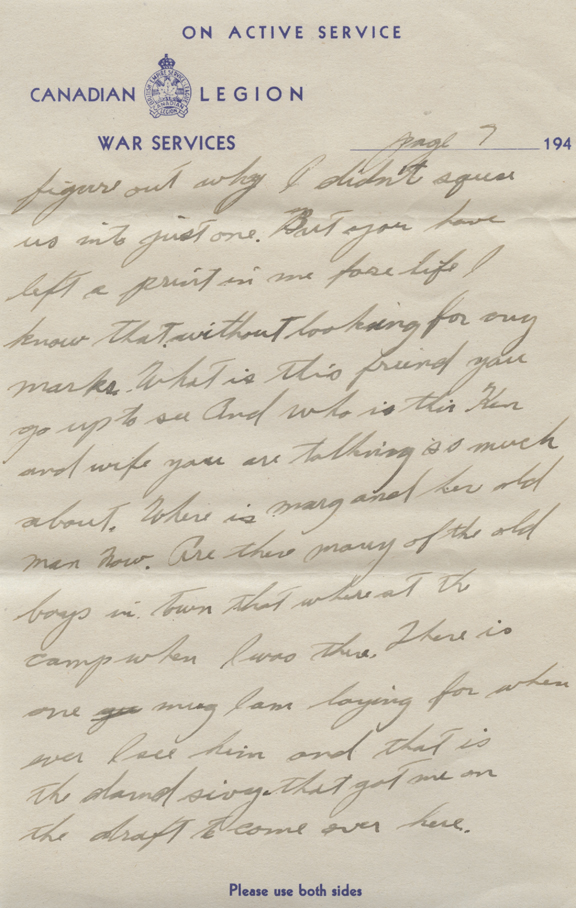 ON ACTIVE SERVICE
CANADIAN LEGION
WAR SERVICES
page 7 194
figure out why I didn't squese
us into just one. But you have
left a print in me fore life I
know that without looking for any
marks. What is this friend you
go up to see And who is this Ken
and wife you are talking so much
about. Where is marg and her old
man Now. Are there many of the old
boys in town that where at the
camp when I was there. There is
one mug I am laying for when
ever I see him and that is
the darnd that got me on
the draft to come over here.
Please use both sides